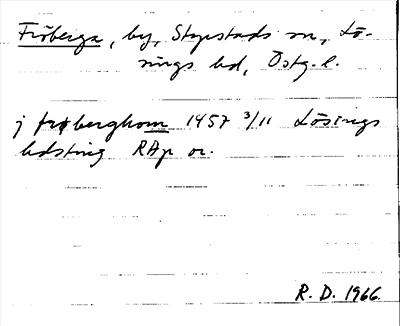 Fröberga, by, Stegstads sn, Lö-
sings hd, Östg. l.
j frøberghom 1457 3/11 Lösings
hdsting RAp or.
R. D. 1966.